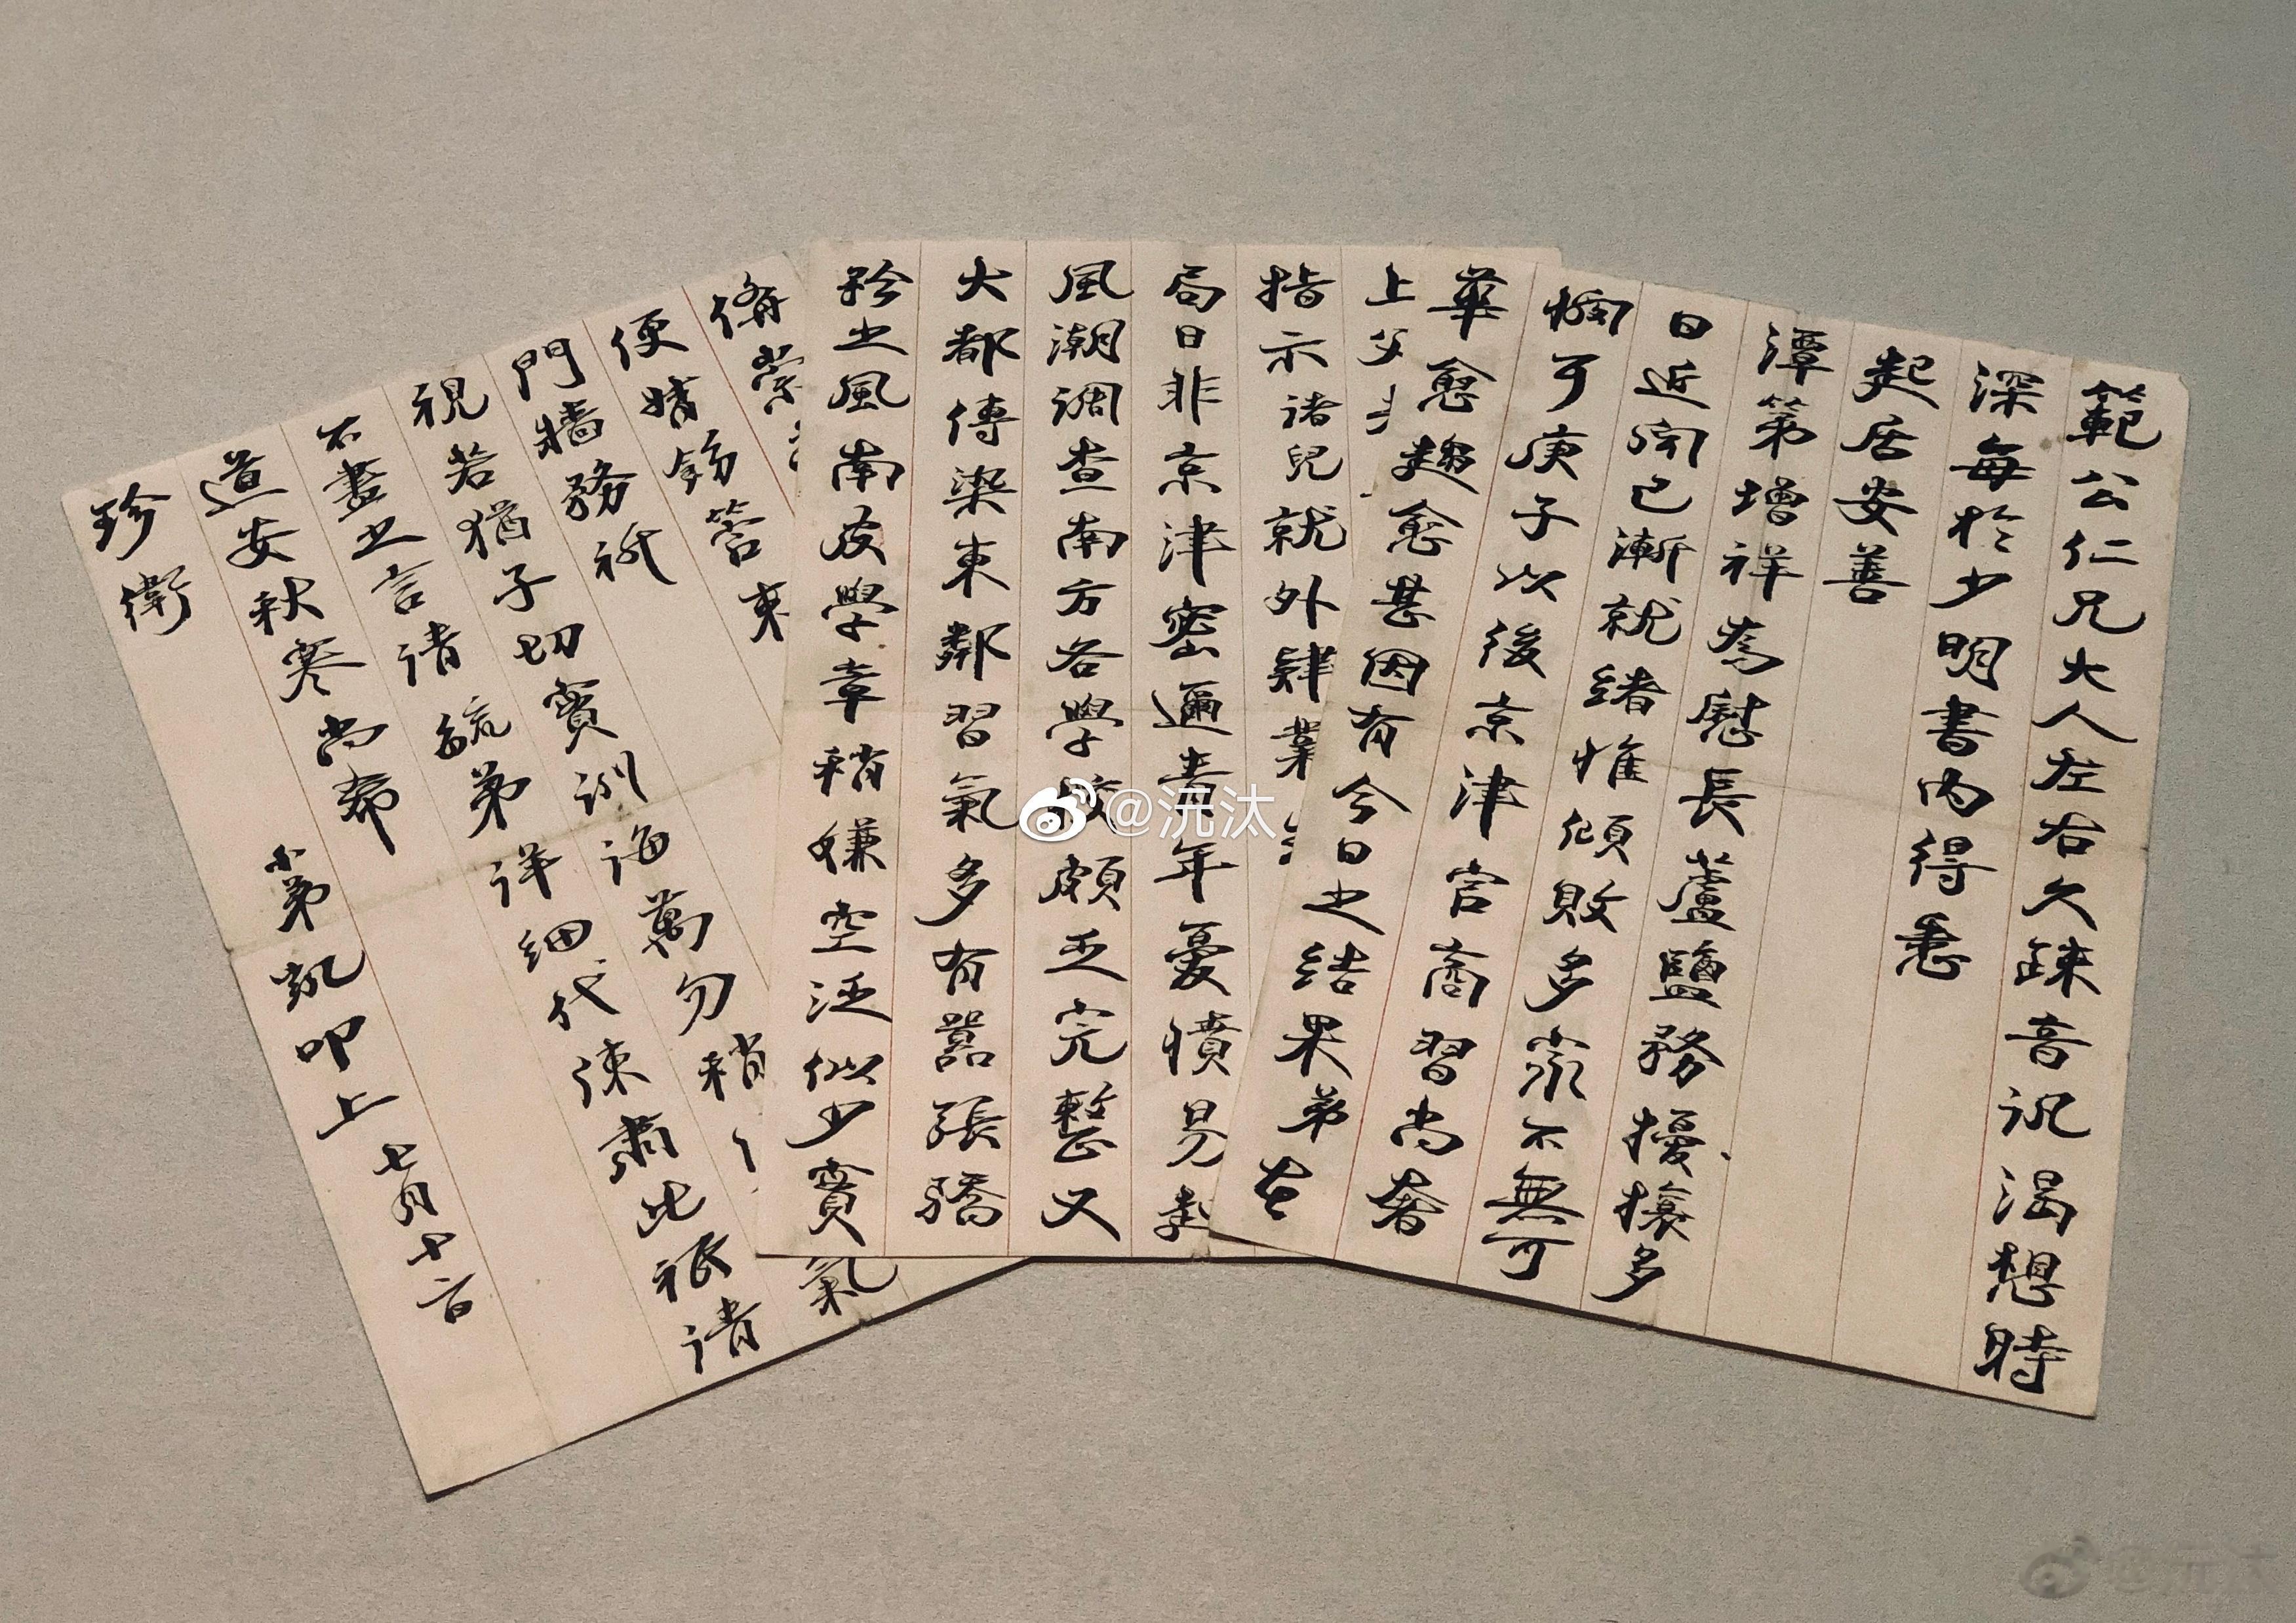 範公仁兄大人左右久疎音訊渴想時
深每於少明書內得悉
起居安善
潭第增祥為慰長蘆鹽務擾攘多
日近聞已漸就緒惟傾敗多家不無可
憫可庚子以後京津官商習尚奢
華愈趨愈甚因有今日之結果弟在
上
指示諸兒就外肄業
局日非京津密邇青年憂憤易起
風潮調查南方各學校頗乏完整又
大都傳染東鄰習氣多有囂張驕
矜之風南皮學章稍嫌空泛似少實
氣
備
便
門牆務祈
視若猶子切實訓誨萬勿稍
不盡之言請毓弟詳細代陳肅此祇請
道安秋寒尚希
珍衛
小弟凱叩上 七月十六日
@沅汰
@沅汰